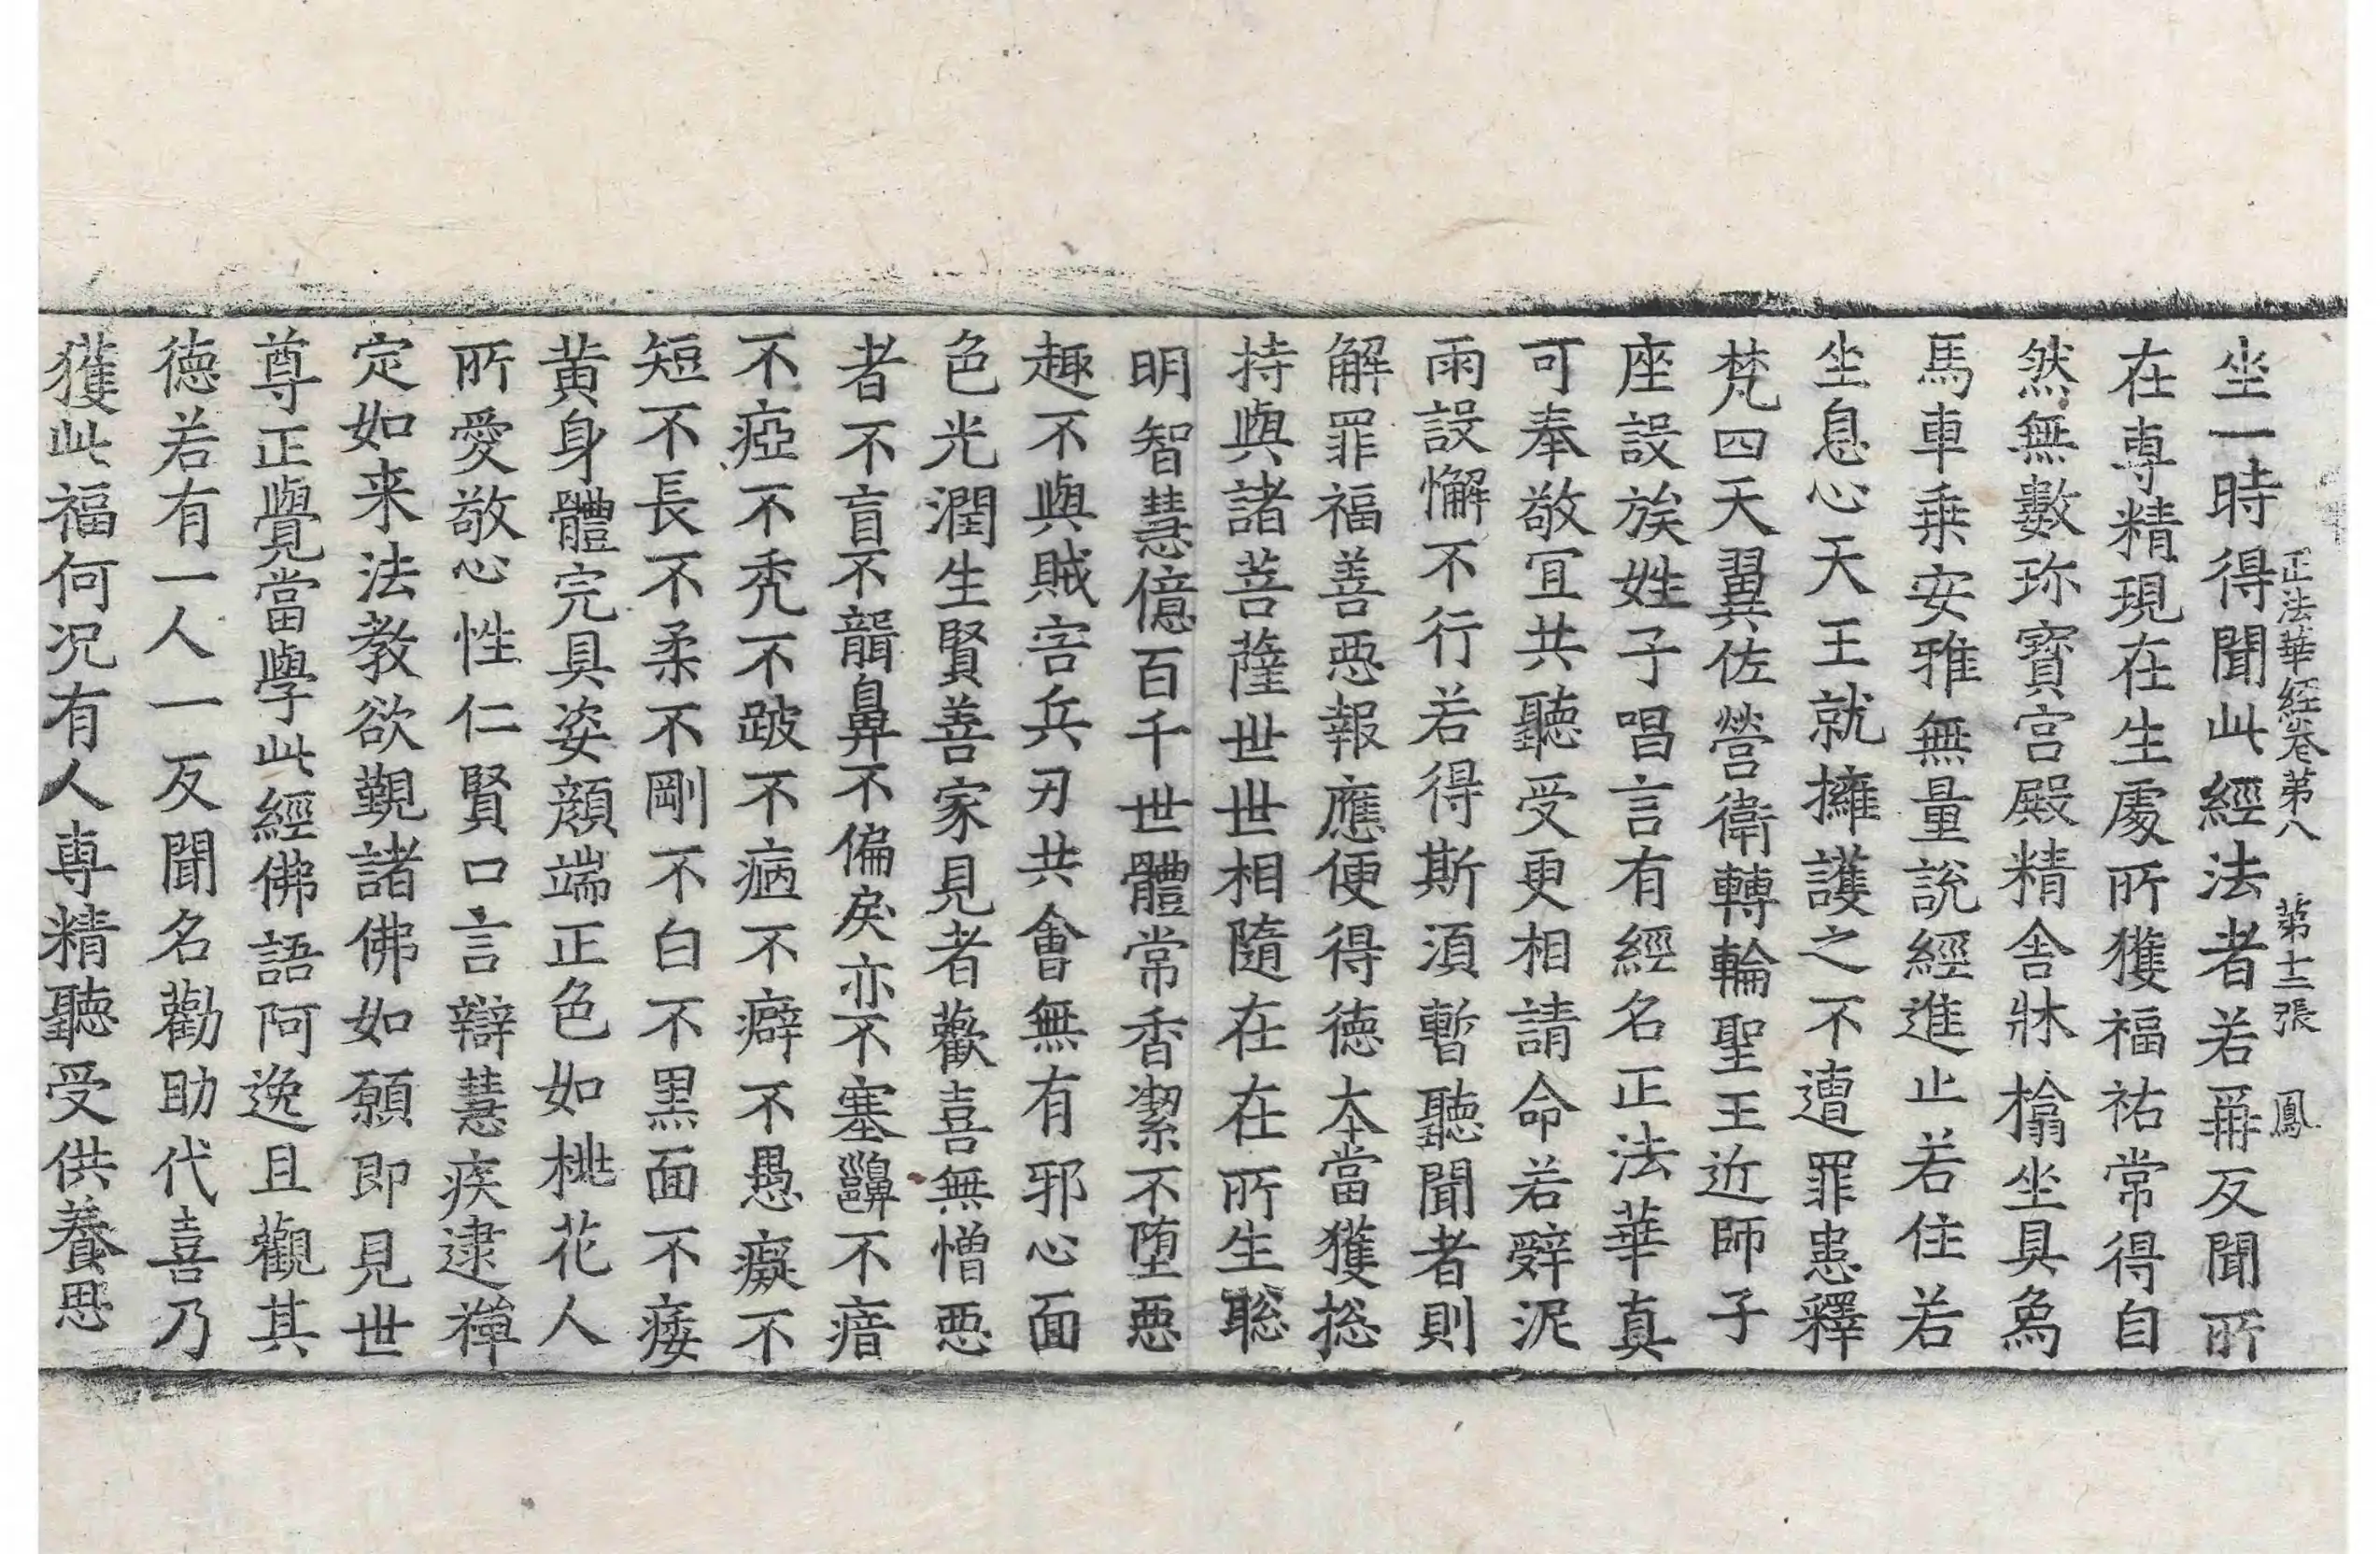 正法華経卷第八 第十三張 鳳
坐一時得聞此經法者若再反聞所
在専精現在生處所獲福祐常得自
然無數珎寶宫殿精舎牀榻坐具象
馬車乗安雅無量說經進止若住若
坐息心天王就擁護之不遭罪患釋
梵四天翼佐營衛轉輪聖王近師子
座設族姓子唱言有經名正法華真
可奉敬冝共聽受更相請命若辤泥
雨設懈不行若得斯須暫聽聞者則
解罪福善惡報應便得德本當獲揔
持與諸菩薩世世相隨在在所生聡
明智慧億百千世體常香潔不墮惡
趣不與賊害兵刃共會無有邪心面
色光潤生賢善家見者歡喜無憎惡
者不盲不聾鼻不偏戾亦不塞齆不瘖
不瘂不秃不跛不病不癖不愚癡不
短不長不柔不剛不白不黒面不痿
黄身體完具姿顔端正色如桃花人
所愛敬心性仁賢口言辯慧疾逮禪
定如来法教欲覲諸佛如願即見世
尊正覺當學此經佛語阿逸且觀其
德若有一人一反聞名勸助代喜乃
獲此福何况有人専精聽受供養思